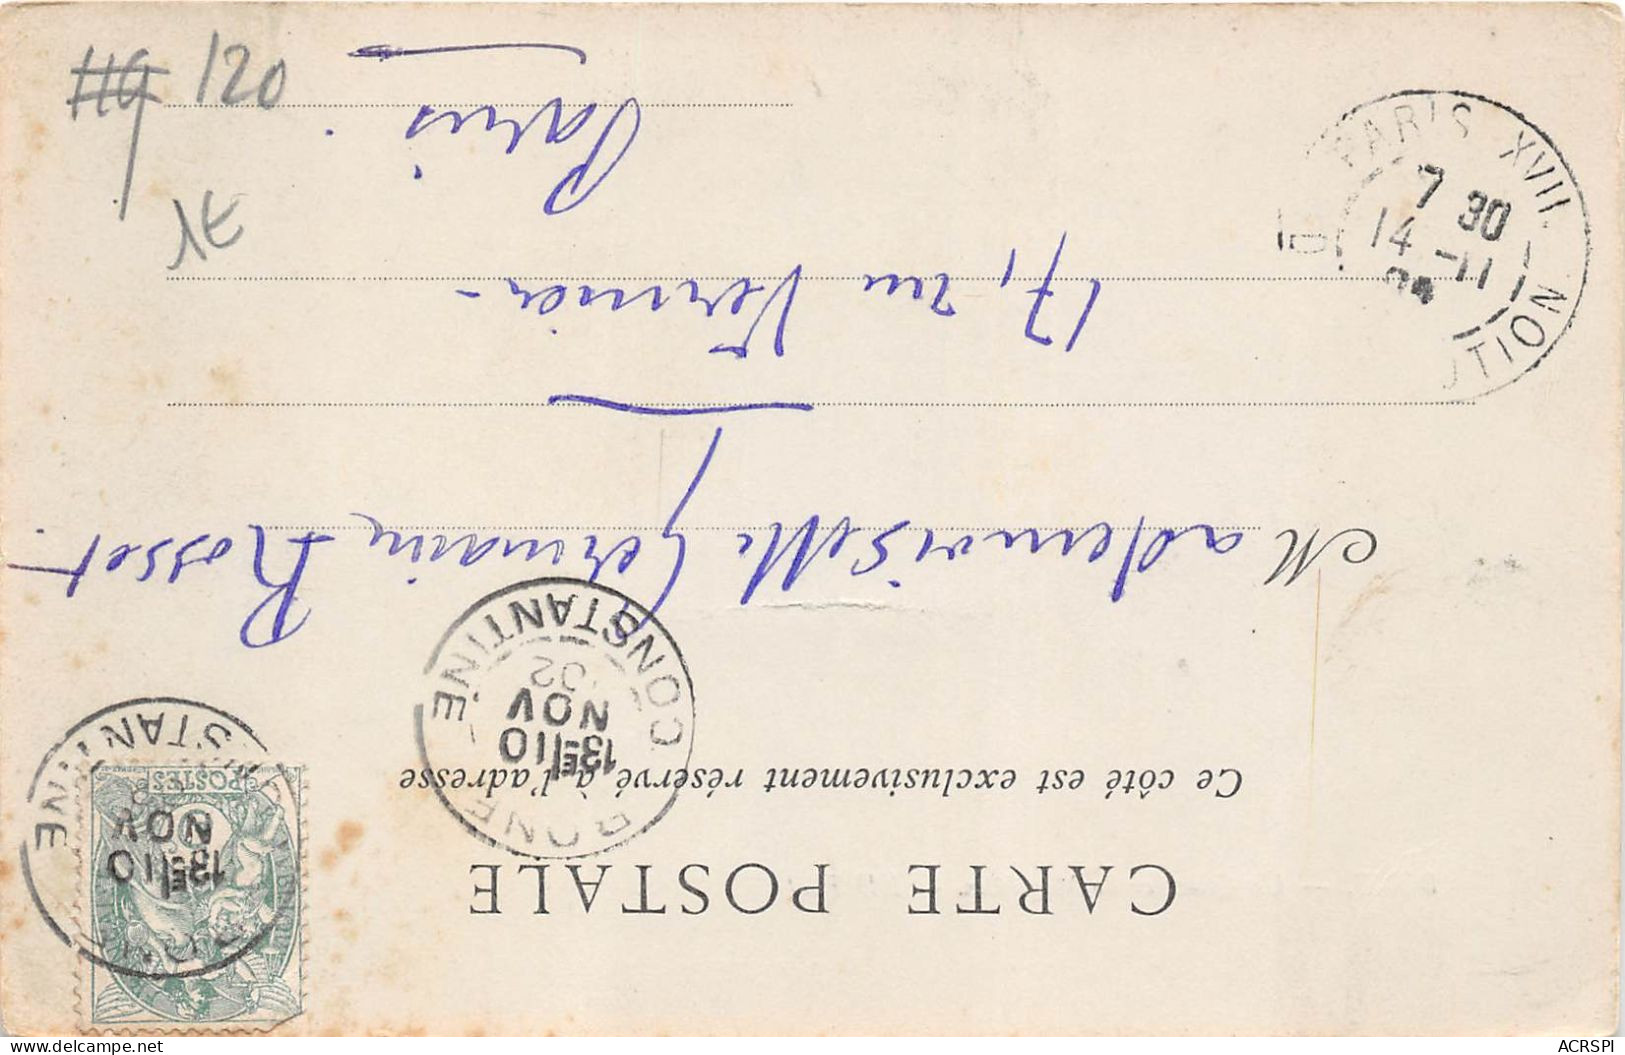 CARTE POSTALE
Ce côté est exclusivement réservé à l'adresse
BONE
13E/10
NOV
02
CONSTANTINE
BONE
13E/10
NOV
POSTES
Mademoiselle Germaine Rosset
17, rue Vernier-
Paris.
PARIS XVII
7 30
14 -11
UTION
119 120
delcampe.net
ACRSPI